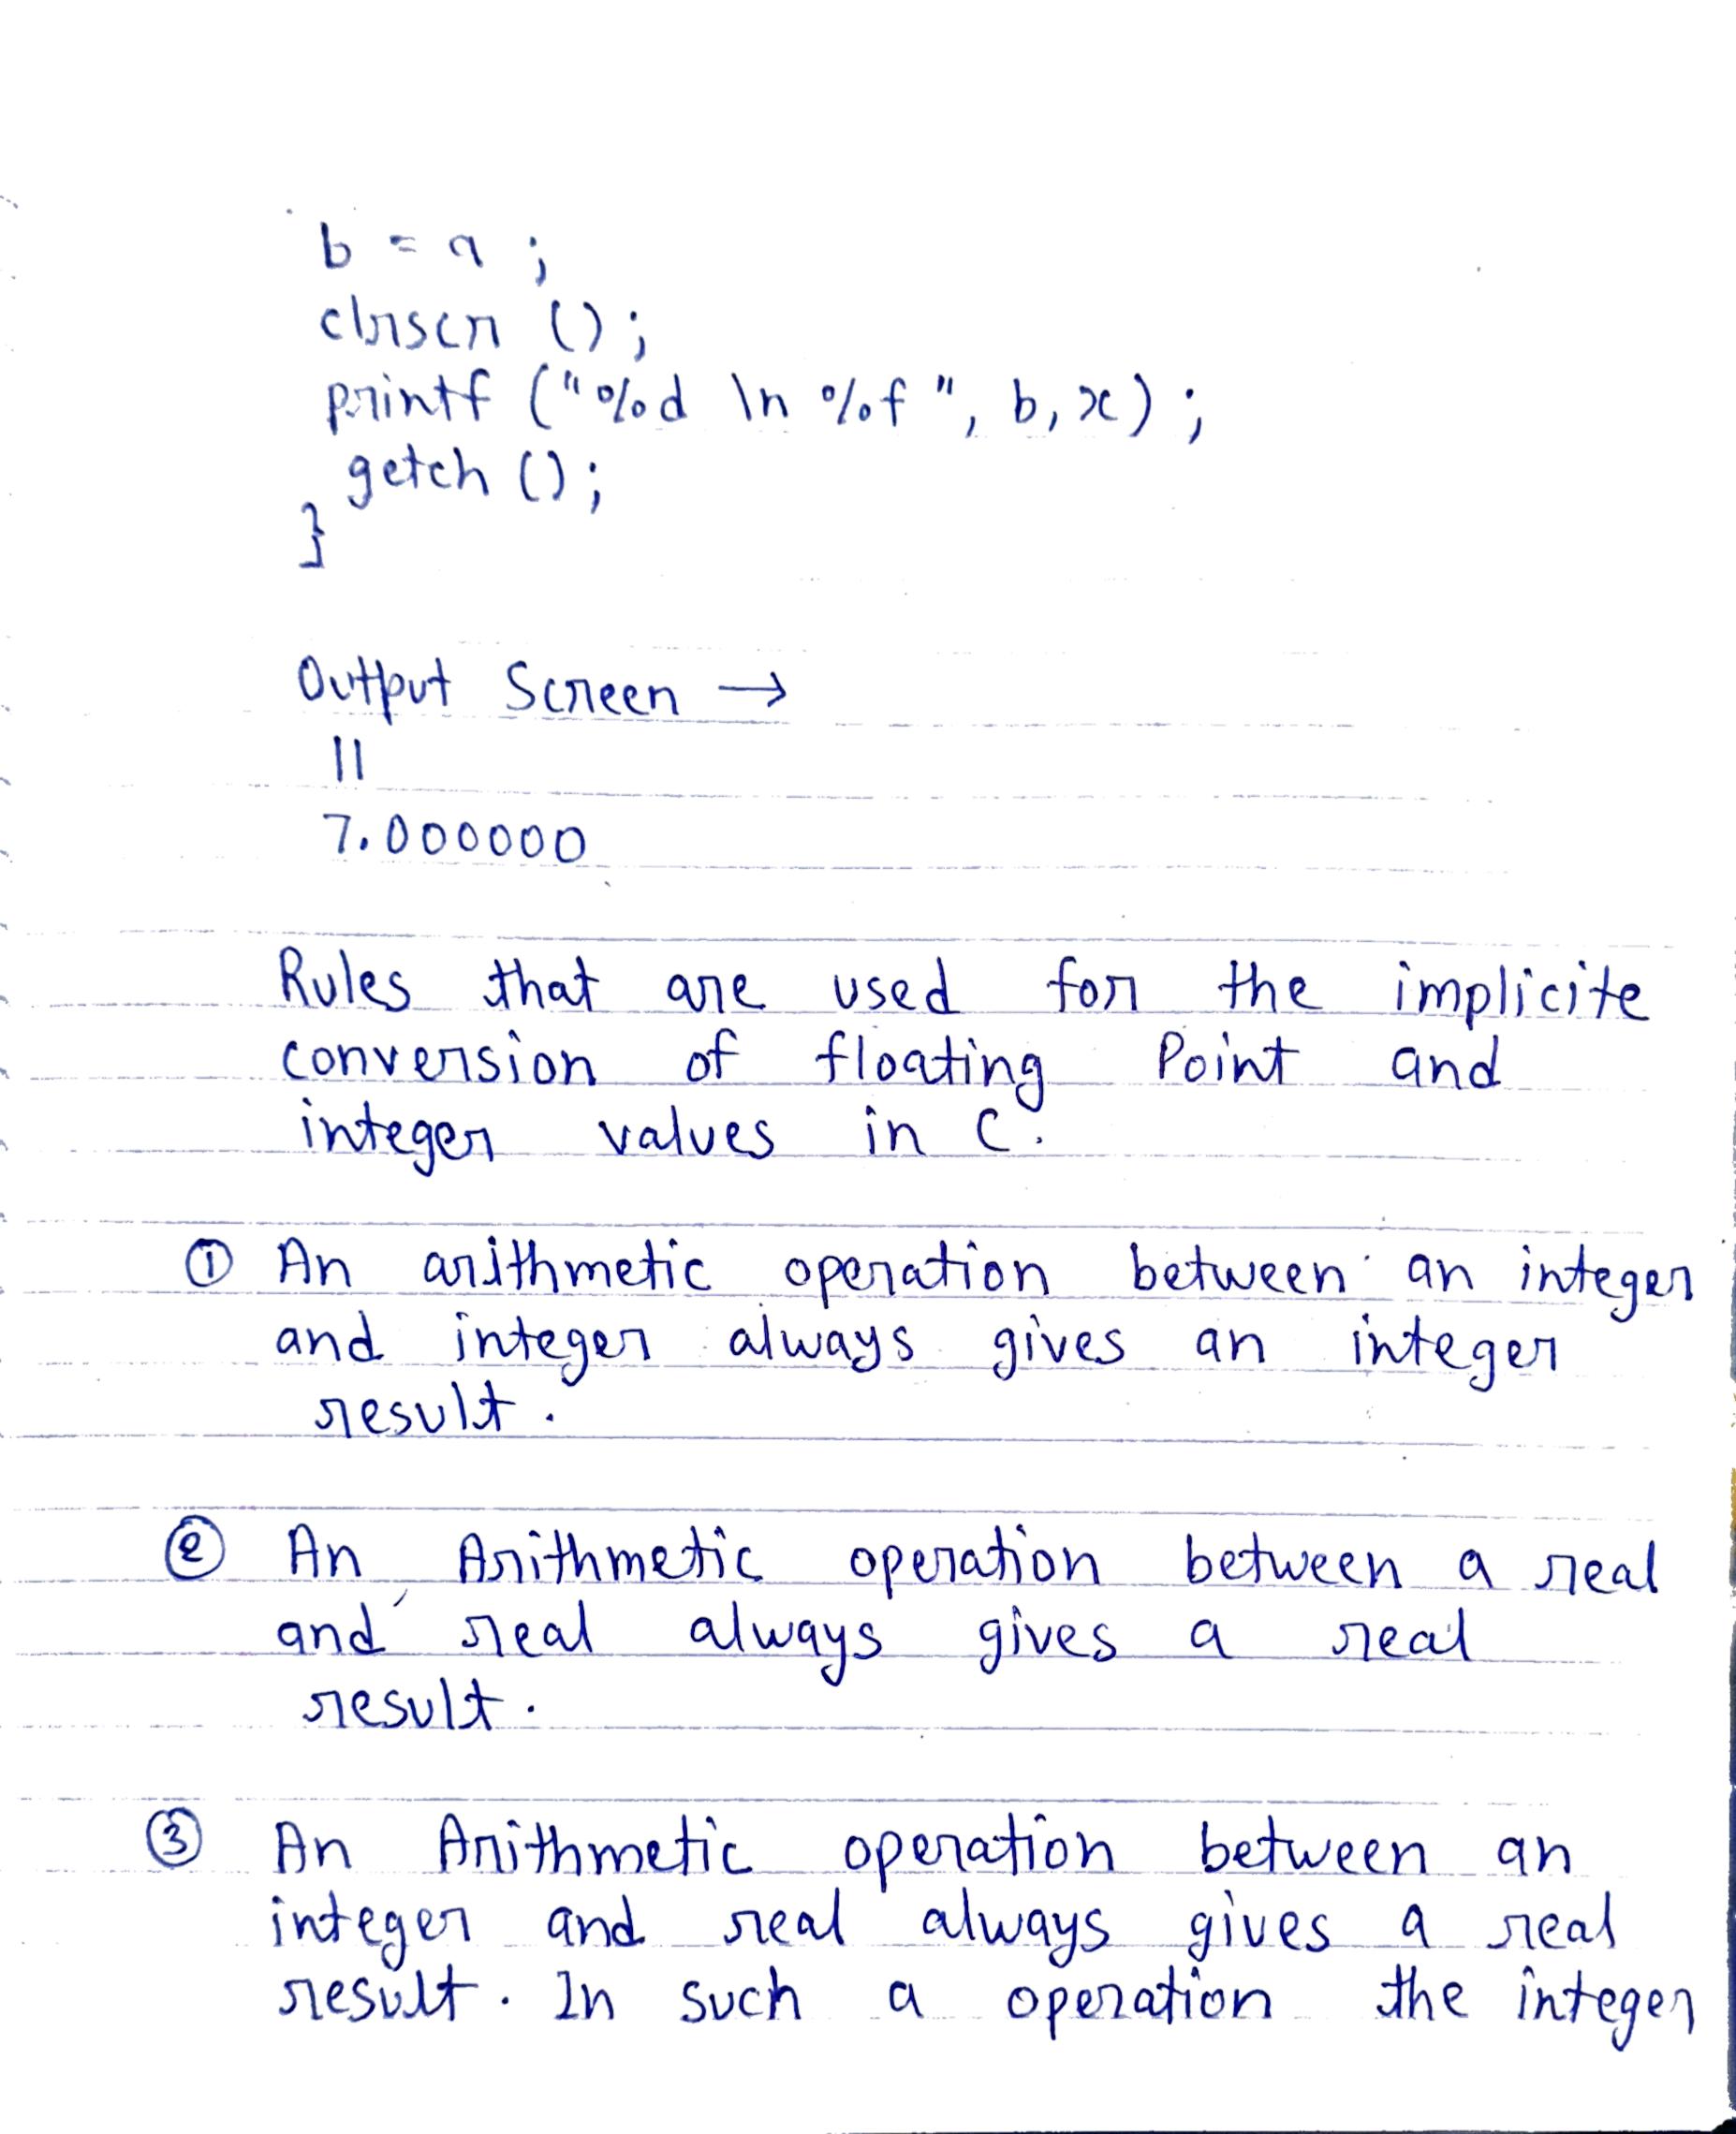 b = a ;
clrscr () ;
printf ("%d \n %f ", b, x) ;
getch () ;
}
Output Screen →
11
7.000000
Rules that are used for the implicite
conversion of floating Point and
integer values in C.
① An arithmetic operation between an integer
and integer always gives an integer
result.
② An Arithmetic operation between a real
and real always gives a real
result.
③ An Arithmetic operation between an
integer and real always gives a real
result. In such a operation the integer